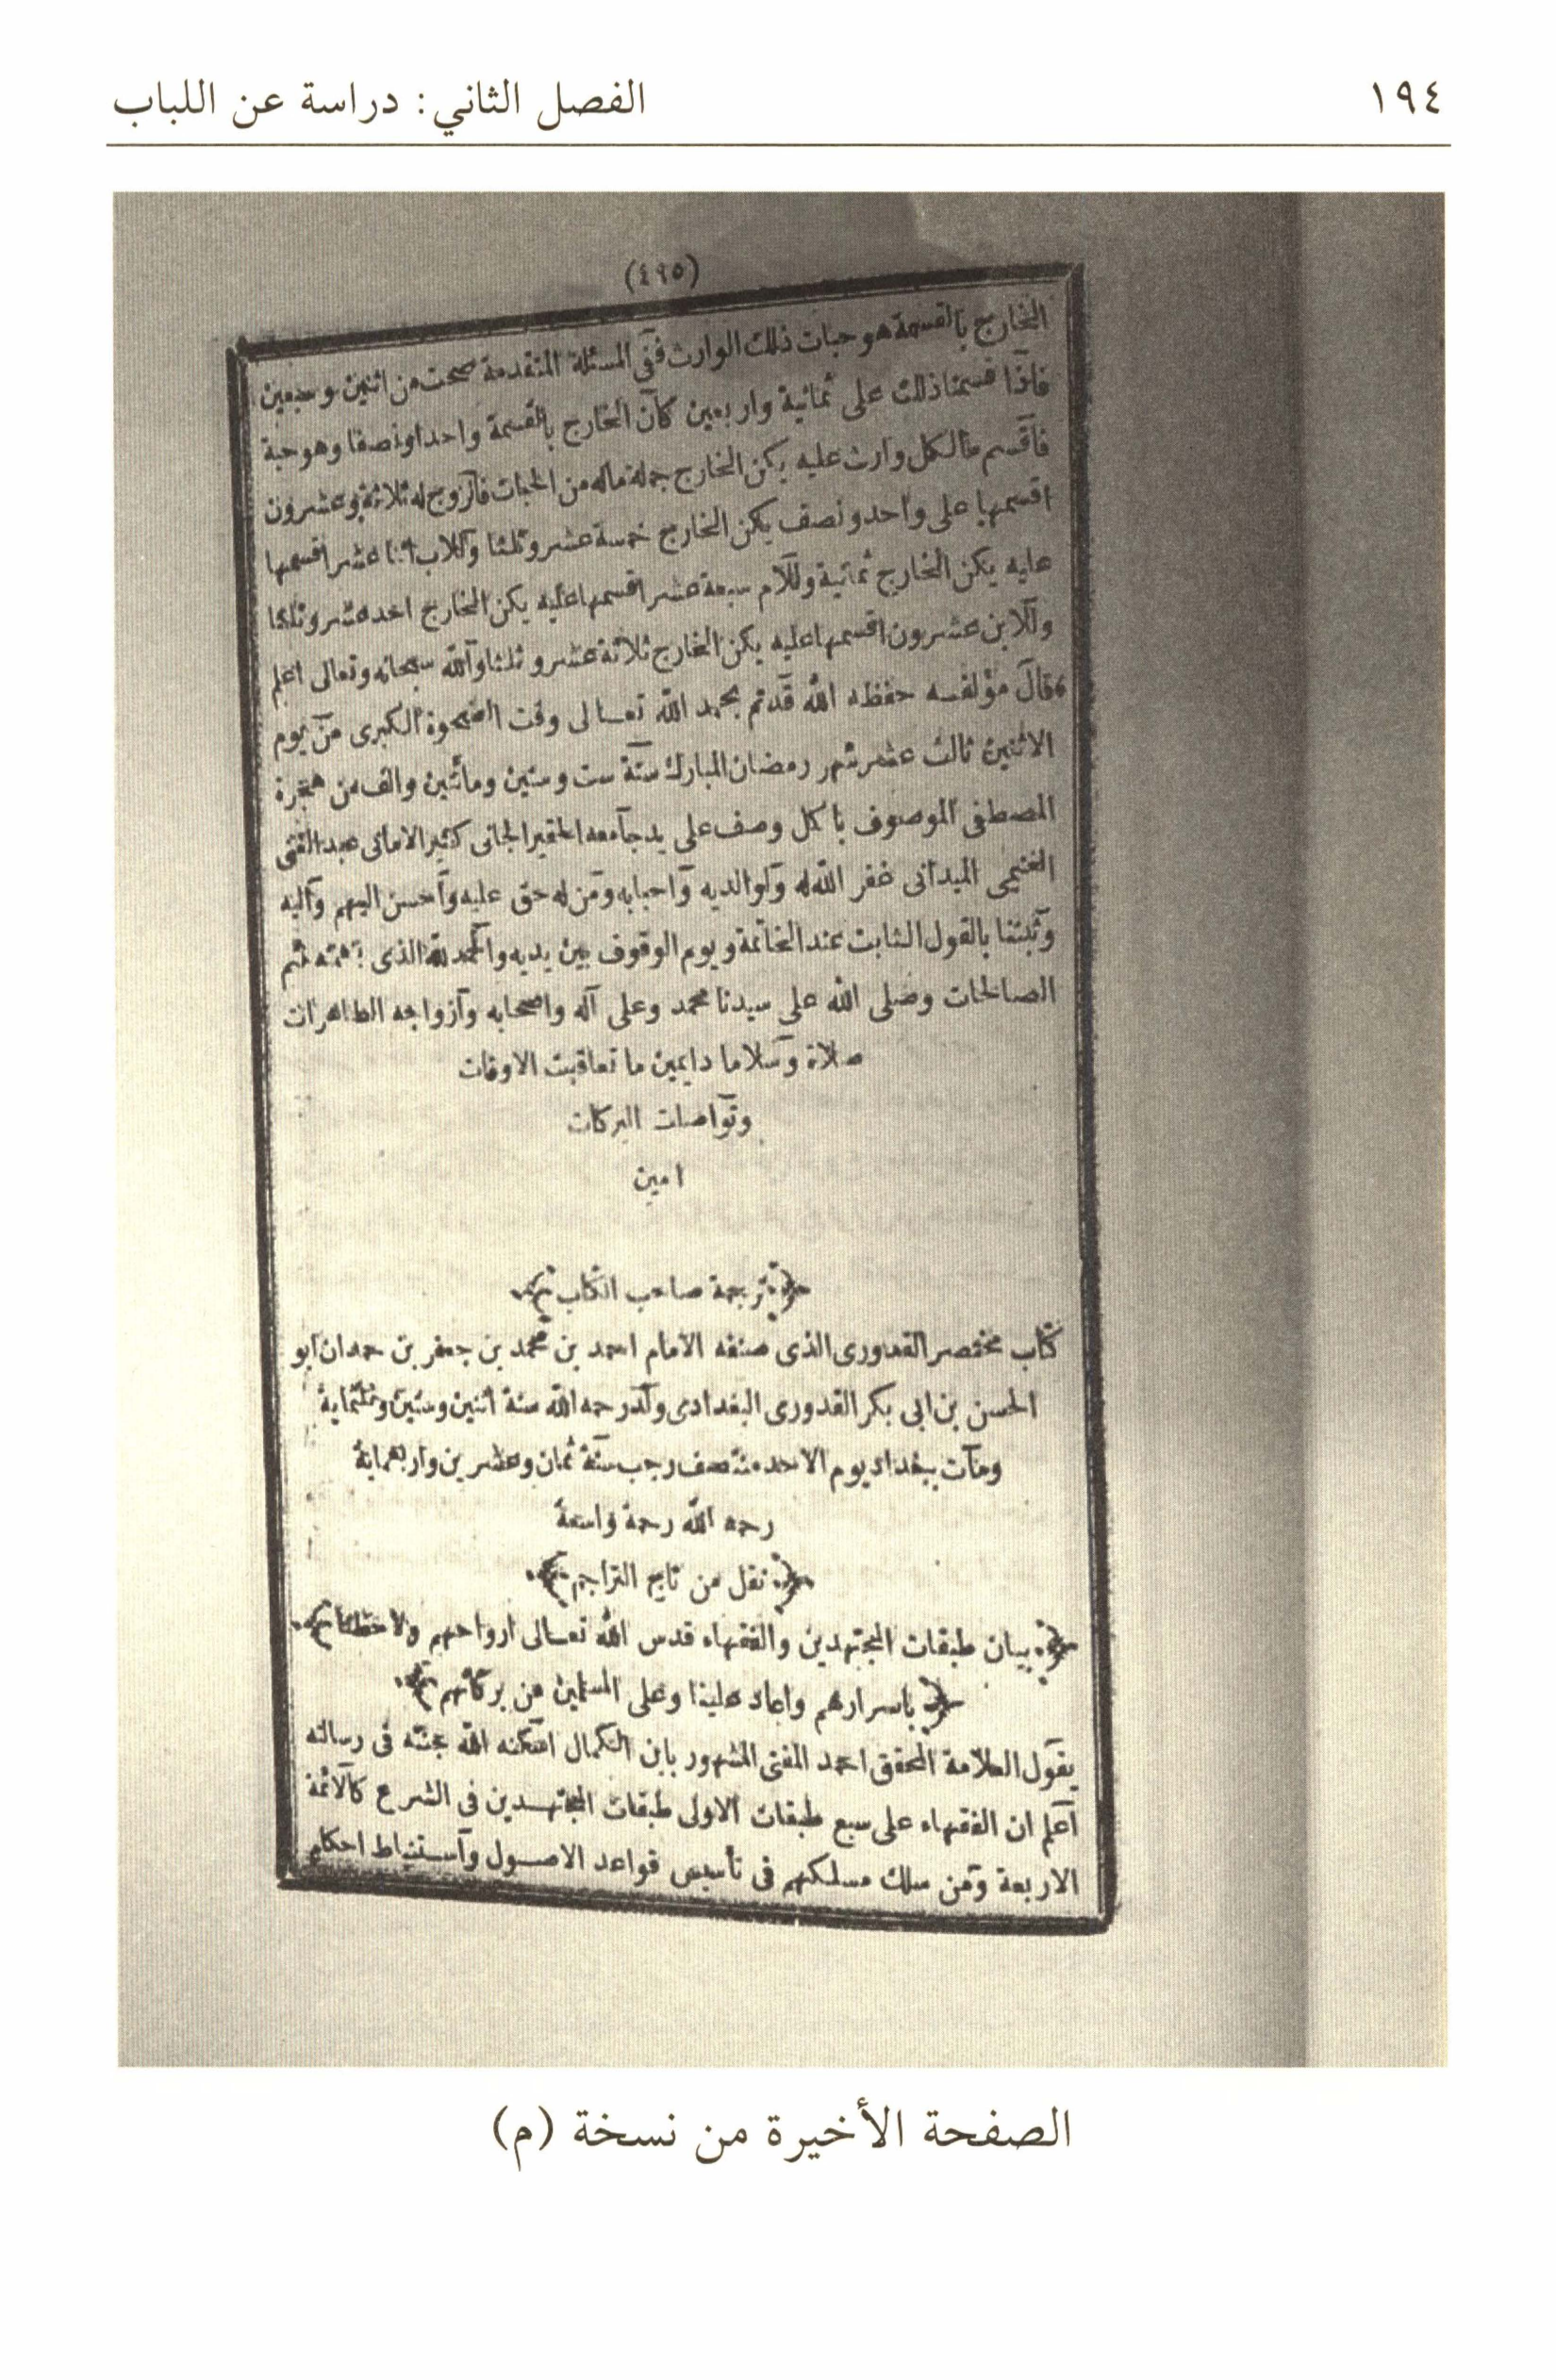 ١٩٤
الفصل الثاني: دراسة عن اللباب
(٤٩٥)
الخارج بالقسمة هو حبات ذلك الوارث ففى المسئلة المتقدمة صحت من اثنين وسبعين
فاذا قسمنا ذلك على ثمانية واربعين كان الخارج بالقسمة واحدا ونصفا وهو حبة
فاقسم ما لكل وارث عليه يكن الخارج جملة ماله من الحبات فالزوج له ثلاثة وعشرون
اقسمها على واحد ونصف يكن الخارج خمسة عشر وثلثا وللاب اثنا عشر اقسمها
عليه يكن الخارج ثمانية وللام سبعة عشر اقسمها عليه يكن الخارج احد عشر وثلثا
وللابن عشرون اقسمها عليه يكن الخارج ثلاثة عشر وثلثا والله سبحانه وتعالى اعلم
قال مؤلفه حفظه الله قد تم بحمد الله تعالى وقت الضحوة الكبرى من يوم
الاثنين ثالث عشر شهر رمضان المبارك سنة ست وستين ومأتين والف من هجرة
المصطفى الموصوف باكمل وصف على يد جامعه الحقير الجانى كثير الامانى عبد الغنى
الغنيمى الميدانى غفر الله له ولوالديه واحبابه ومن له حق عليه واحسن اليهم واليه
وثبتنا بالقول الثابت عند الخاتمة ويوم الوقوف بين يديه والحمد لله الذى بنعمته تتم
الصالحات وصلى الله على سيدنا محمد وعلى آله واصحابه وازواجه الطاهرات
صلاة وسلاما دايمين ما تعاقبت الاوقات
وتواصلت البركات
امين
ترجمة صاحب الكتاب
كتاب مختصر القدورى الذى صنفه الامام احمد بن محمد بن جعفر بن حمدان ابو
الحسن بن ابى بكر القدورى البغدادى ولد رحمه الله سنة اثنين وستين وثلثماية
ومات ببغداد يوم الاحد منتصف رجب سنة ثمان وعشرين واربعماية
رحمه الله رحمة واسعة
نقل من تاج التراجم
بيان طبقات المجتهدين والفقهاء قدس الله تعالى ارواحهم
باسرارهم واعاد علينا وعلى المسلمين من بركاتهم
يقول العلامة المحقق احمد المفتى المشهور بابن الكمال اسكنه الله جنته فى رسالته
اعلم ان الفقهاء على سبع طبقات الاولى طبقات المجتهدين فى الشرع كالائمة
الاربعة ومن سلك مسلكهم فى تأسيس قواعد الاصول واستنباط احكام
الصفحة الأخيرة من نسخة (م)